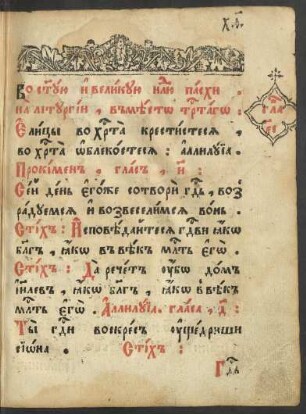 Во ст҃ую и҆ вели́кую нлю па́схи .
на лїтургі́и , въмѣ́сто трⷭ҇та́го :
Є҆ли́цы во хрⷭ҇та̀ крести́стесѧ ,
во хрⷭ҇та̀ ѡ҆блеко́стесѧ : а҆ллилꙋ́їа .
Проки́менъ , гла́съ , и҃ :
Се́й де́нь є҆го́же сотворѝ гдⷭ҇ь , воз
ра́дꙋемсѧ и҆ возвесели́мсѧ во́нь .
Сті́хъ : И҆сповѣ́дайтесѧ гдⷭ҇ви ꙗ҆́кѡ
бл҃гъ , ꙗ҆́кѡ въ вѣ́къ млⷭ҇ть є҆гѡ̀ .
Сті́хъ : Да рече́тъ ᲂу҆́бѡ до́мъ
і҆и҃левъ , ꙗ҆́кѡ бл҃гъ , ꙗ҆́кѡ в вѣ́къ
млⷭ҇ть є҆гѡ̀ . А҆ллилꙋ́їа . гла́съ , д҃ :
Ты̀ гдⷭ҇и воскре́съ ᲂу҆ще́дриши
сїѡ́на . Сті́хъ :
Гдⷭ҇ь